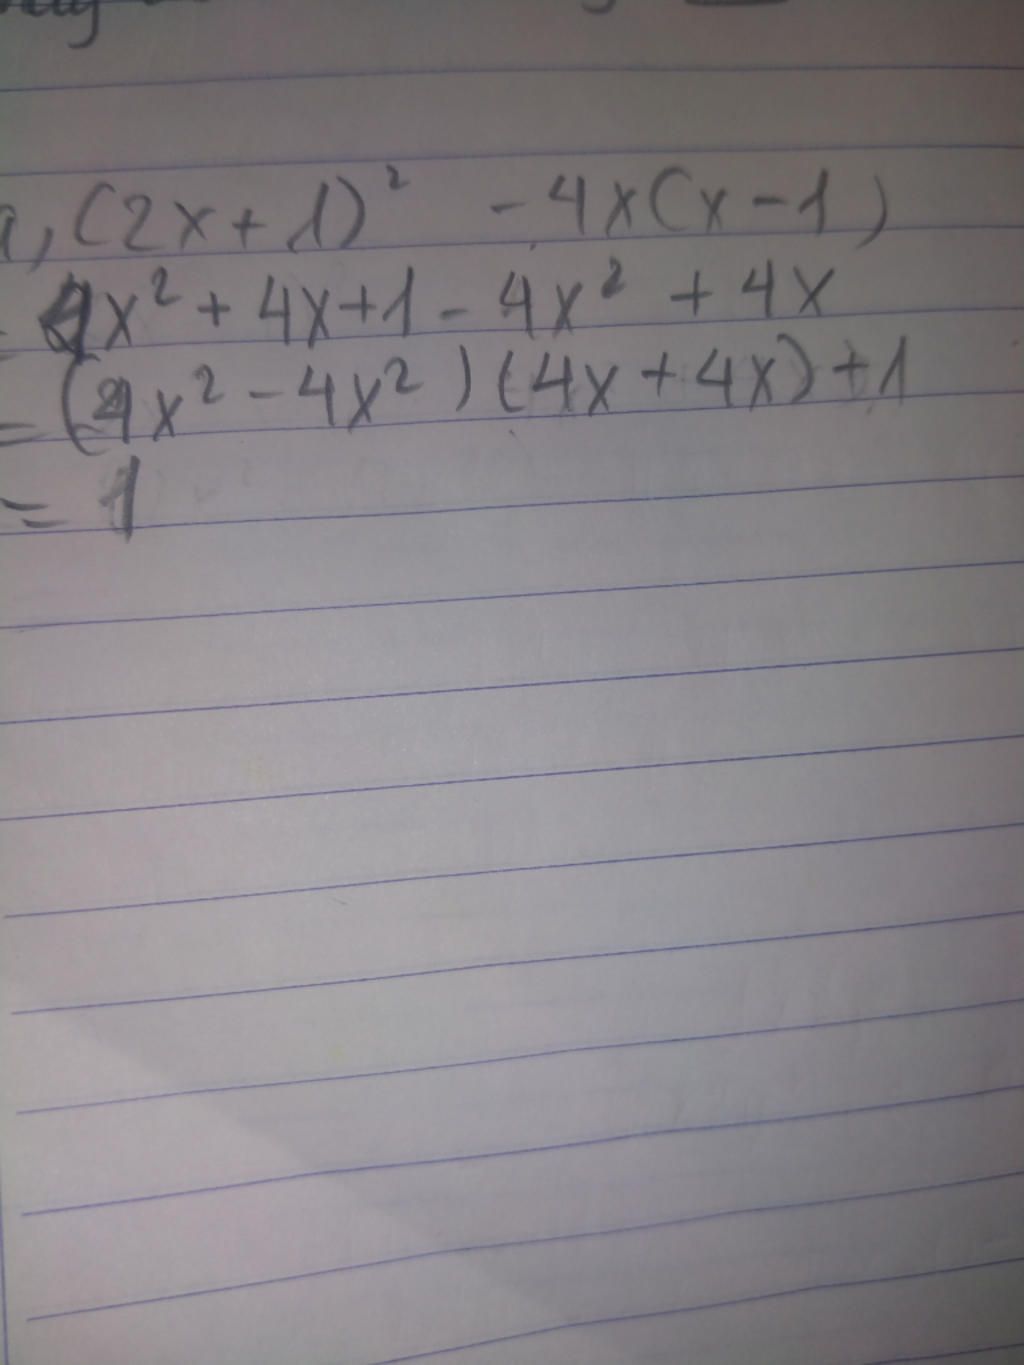 a, (2x+1)² - 4x(x-1)
= 4x² + 4x+1 - 4x² + 4x
= (4x² - 4x²) (4x + 4x) + 1
= 1